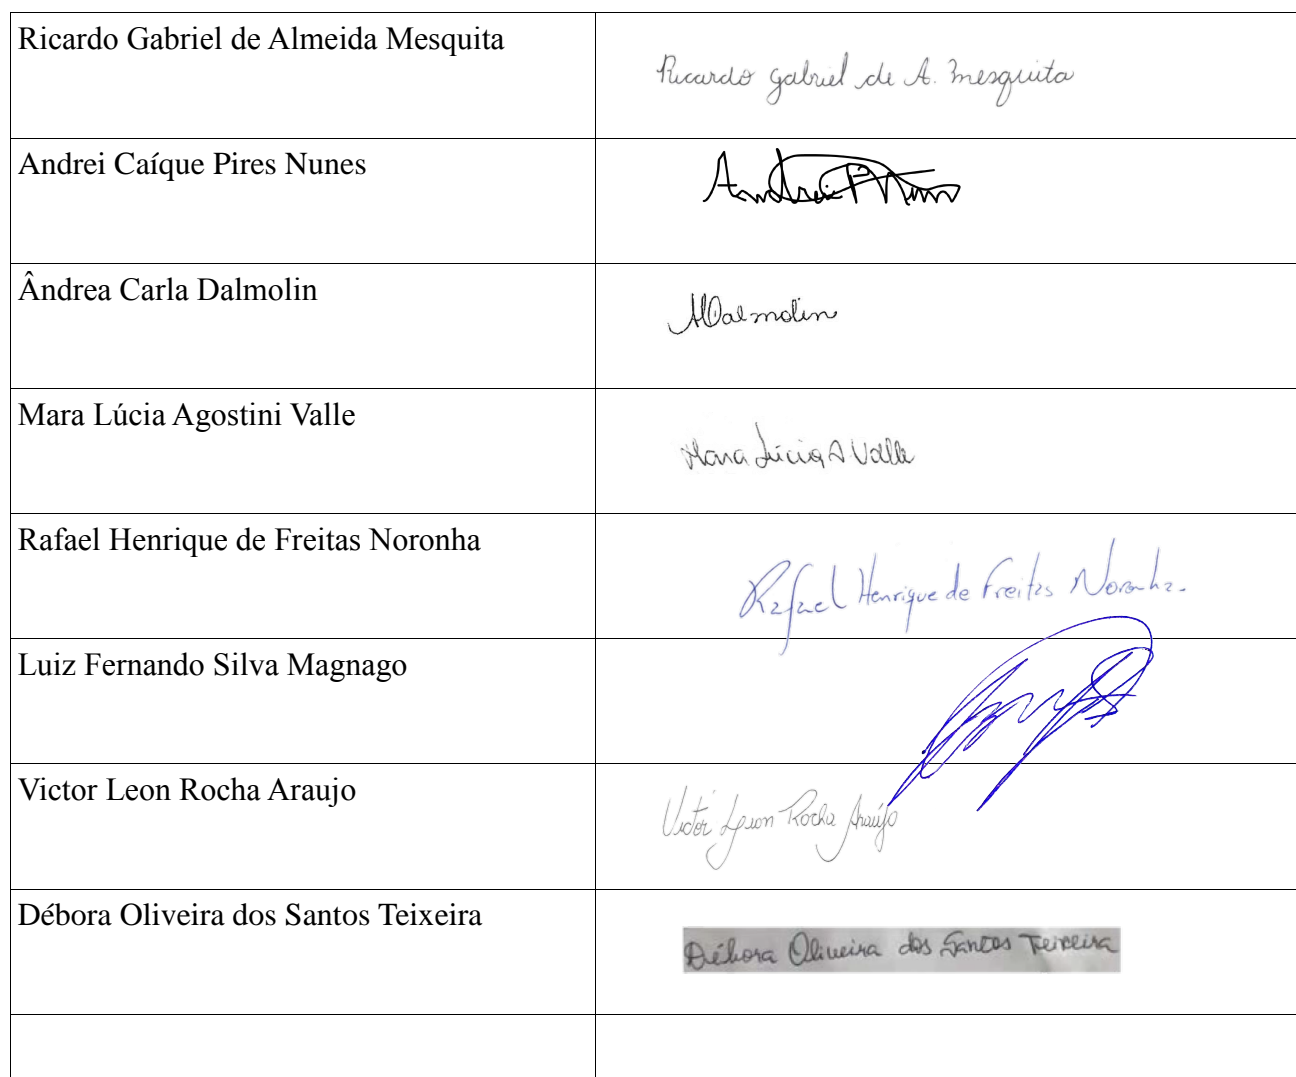 Ricardo Gabriel de Almeida Mesquita
Ricardo Gabriel de A. Mesquita
Andrei Caíque Pires Nunes
Andrei P Nunes
Ândrea Carla Dalmolin
ACDalmolin
Mara Lúcia Agostini Valle
Mara Lúcia A Valle
Rafael Henrique de Freitas Noronha
Rafael Henrique de Freitas Noronha.
Luiz Fernando Silva Magnago
Victor Leon Rocha Araujo
Victor Leon Rocha Araújo
Débora Oliveira dos Santos Teixeira
Débora Oliveira dos Santos Teixeira